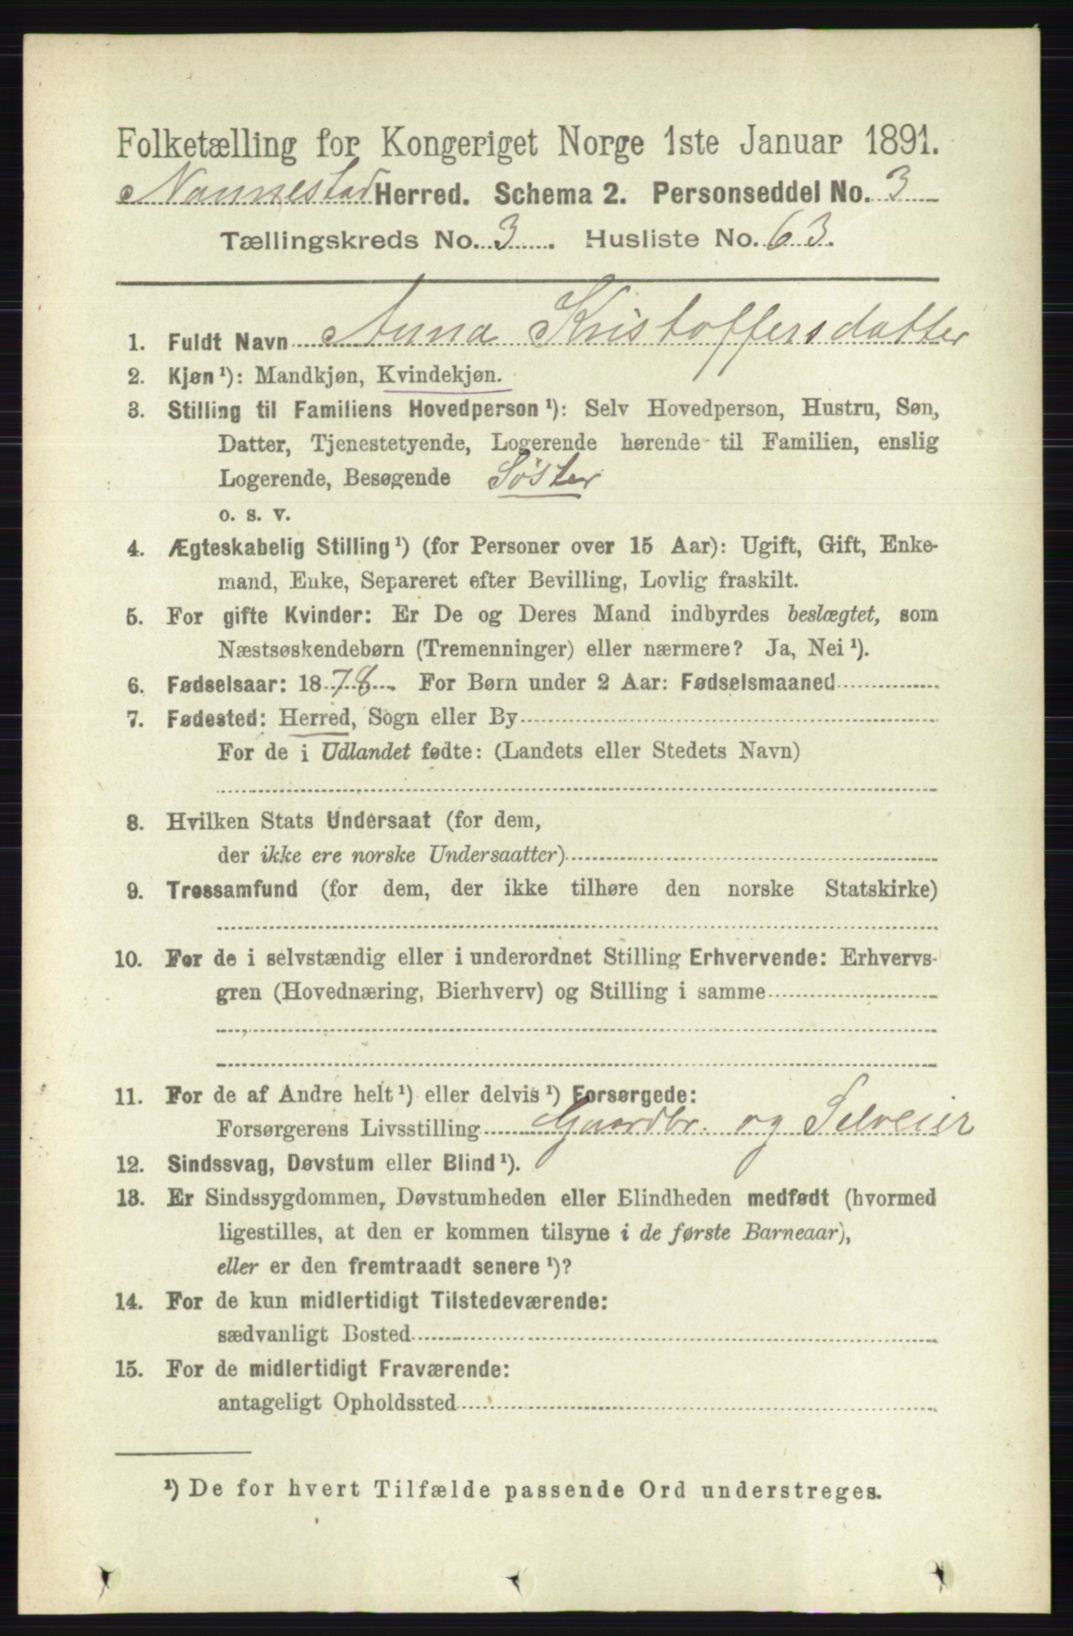 Folketælling for Kongeriget Norge 1ste Januar 1891.
Nannestad Herred. Schema 2. Personseddel No. 3
Tællingskreds No. 3. Husliste No. 63.
1. Fuldt Navn Anna Kristoffersdatter
2. Kjøn¹): Mandkjøn, Kvindekjøn.
3. Stilling til Familiens Hovedperson¹): Selv Hovedperson, Hustru, Søn,
Datter, Tjenestetyende, Logerende hørende til Familien, enslig
Logerende, Besøgende Söster
o. s. v.
4. Ægteskabelig Stilling¹) (for Personer over 15 Aar): Ugift, Gift, Enke-
mand, Enke, Separeret efter Bevilling, Lovlig fraskilt.
5. For gifte Kvinder: Er De og Deres Mand indbyrdes beslægtet, som
Næstsøskendebørn (Tremenninger) eller nærmere? Ja, Nei¹).
6. Fødselsaar: 1878. For Børn under 2 Aar: Fødselsmaaned
7. Fødested: Herred, Sogn eller By
For de i Udlandet fødte: (Landets eller Stedets Navn)
8. Hvilken Stats Undersaat (for dem,
der ikke ere norske Undersaatter)
9. Trossamfund (for dem, der ikke tilhøre den norske Statskirke)
10. For de i selvstændig eller i underordnet Stilling Erhvervende: Erhvervs-
gren (Hovednæring, Bierhverv) og Stilling i samme
11. For de af Andre helt¹) eller delvis¹) Forsørgede:
Forsørgerens Livsstilling Gaardbr. og Selveier
12. Sindssvag, Døvstum eller Blind¹).
13. Er Sindssygdommen, Døvstumheden eller Blindheden medfødt (hvormed
ligestilles, at den er kommen tilsyne i de første Barneaar),
eller er den fremtraadt senere¹)?
14. For de kun midlertidigt Tilstedeværende:
sædvanligt Bosted
15. For de midlertidigt Fraværende:
antageligt Opholdssted
¹) De for hvert Tilfælde passende Ord understreges.